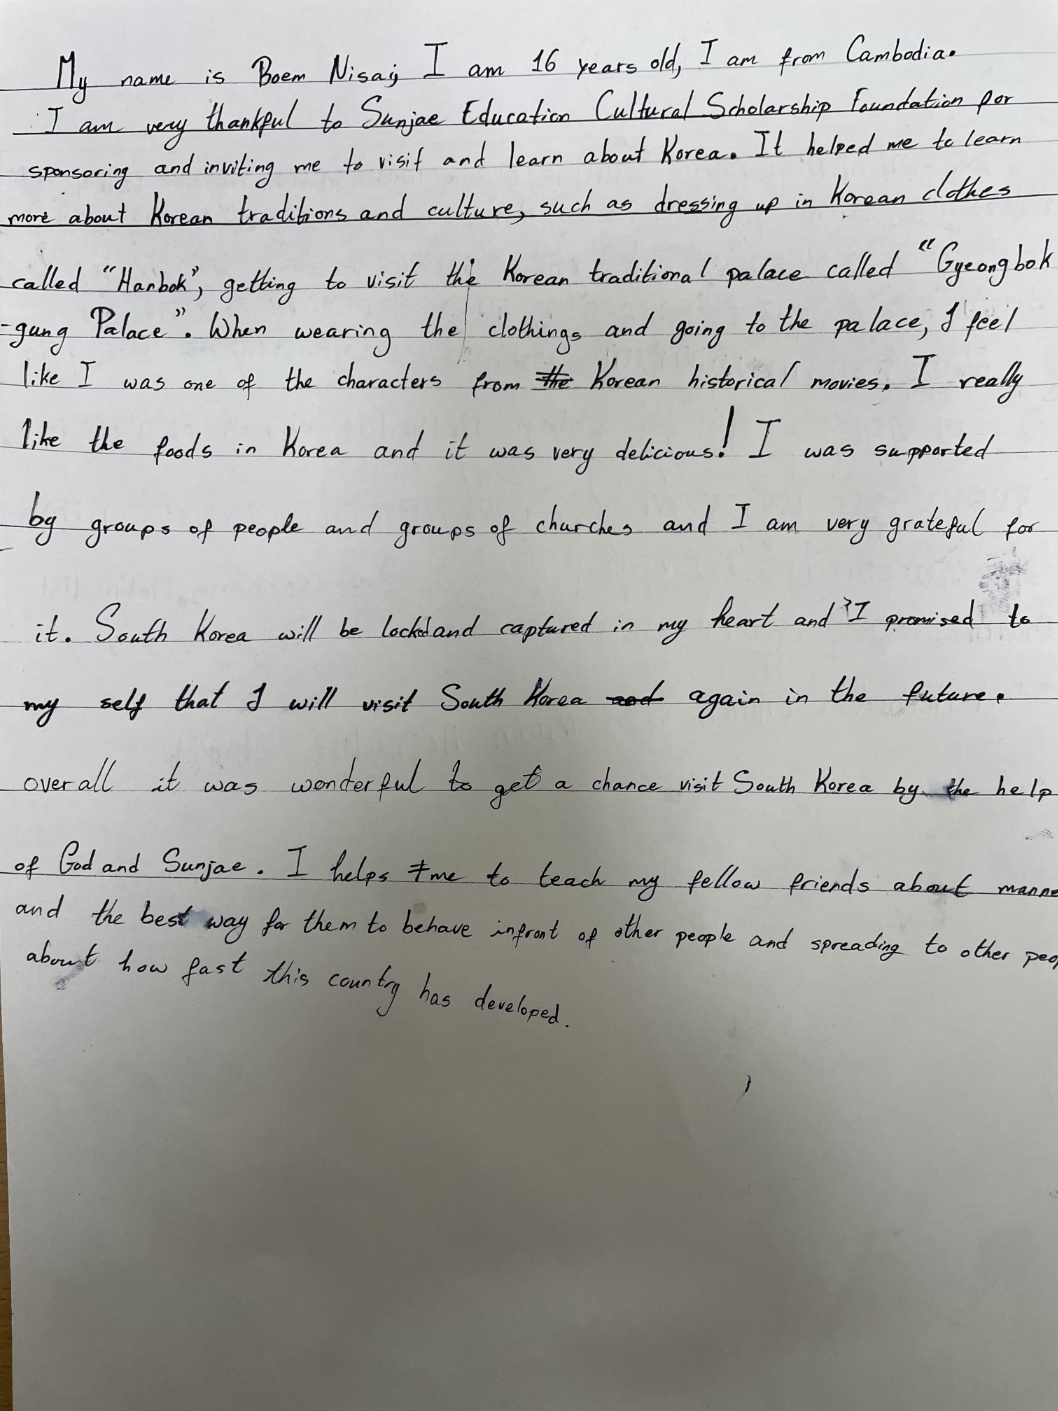 My name is Boem Nisai, I am 16 years old, I am from Cambodia.
I am very thankful to Sunjae Education Cultural Scholarship Foundation for
sponsoring and inviting me to visit and learn about Korea. It helped me to learn
more about Korean traditions and culture, such as dressing up in Korean clothes
called "Hanbok", getting to visit the Korean traditional palace called "Gyeongbok
-gung Palace". When wearing the clothings and going to the palace, I feel
like I was one of the characters from Korean historical movies. I really
like the foods in Korea and it was very delicious! I was supported
by groups of people and groups of churches and I am very grateful for
it. South Korea will be locked and captured in my heart and I promised to
my self that I will visit South Korea again in the future.
overall it was wonderful to get a chance visit South Korea by the help
of God and Sunjae. I helps me to teach my fellow friends about manne
and the best way for them to behave infront of other people and spreading to other peop
about how fast this country has developed.